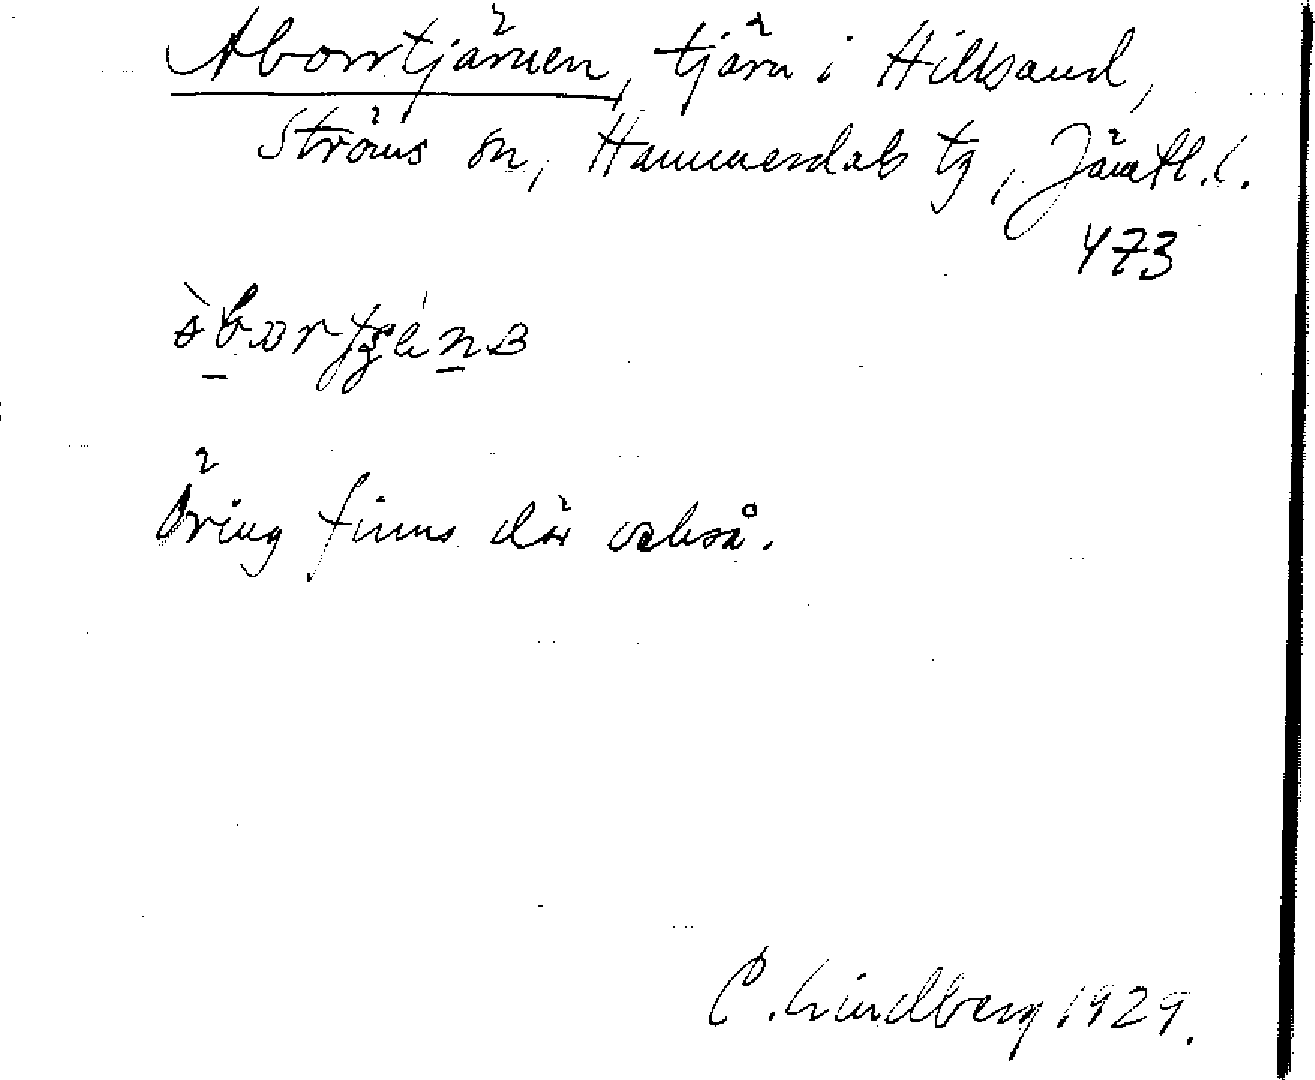 Aborrtjärnen, tjärn i Hillsand,
Ströms sn, Hammerdals tg, Jämtl. l.
473
Öring finns där också.
C. Lindberg 1929.